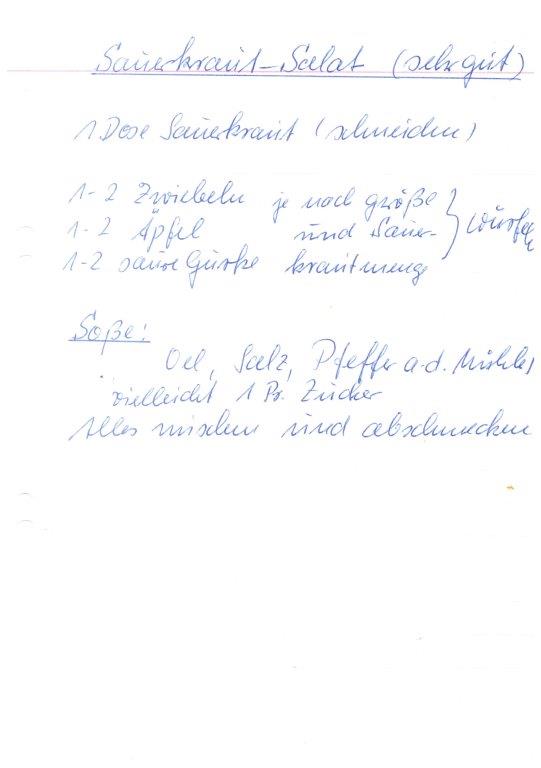 Sauerkraut-Salat (sehr gut)
1 Dose Sauerkraut (schneiden)
1-2 Zwiebeln je nach Größe
1-2 Äpfel und Sauer- } würfeln
1-2 saure Gurke krautmenge
Soße:
Oel, Salz, Pfeffer a.d. Mühle,
vielleicht 1 Pr. Zucker
Alles mischen und abschmecken